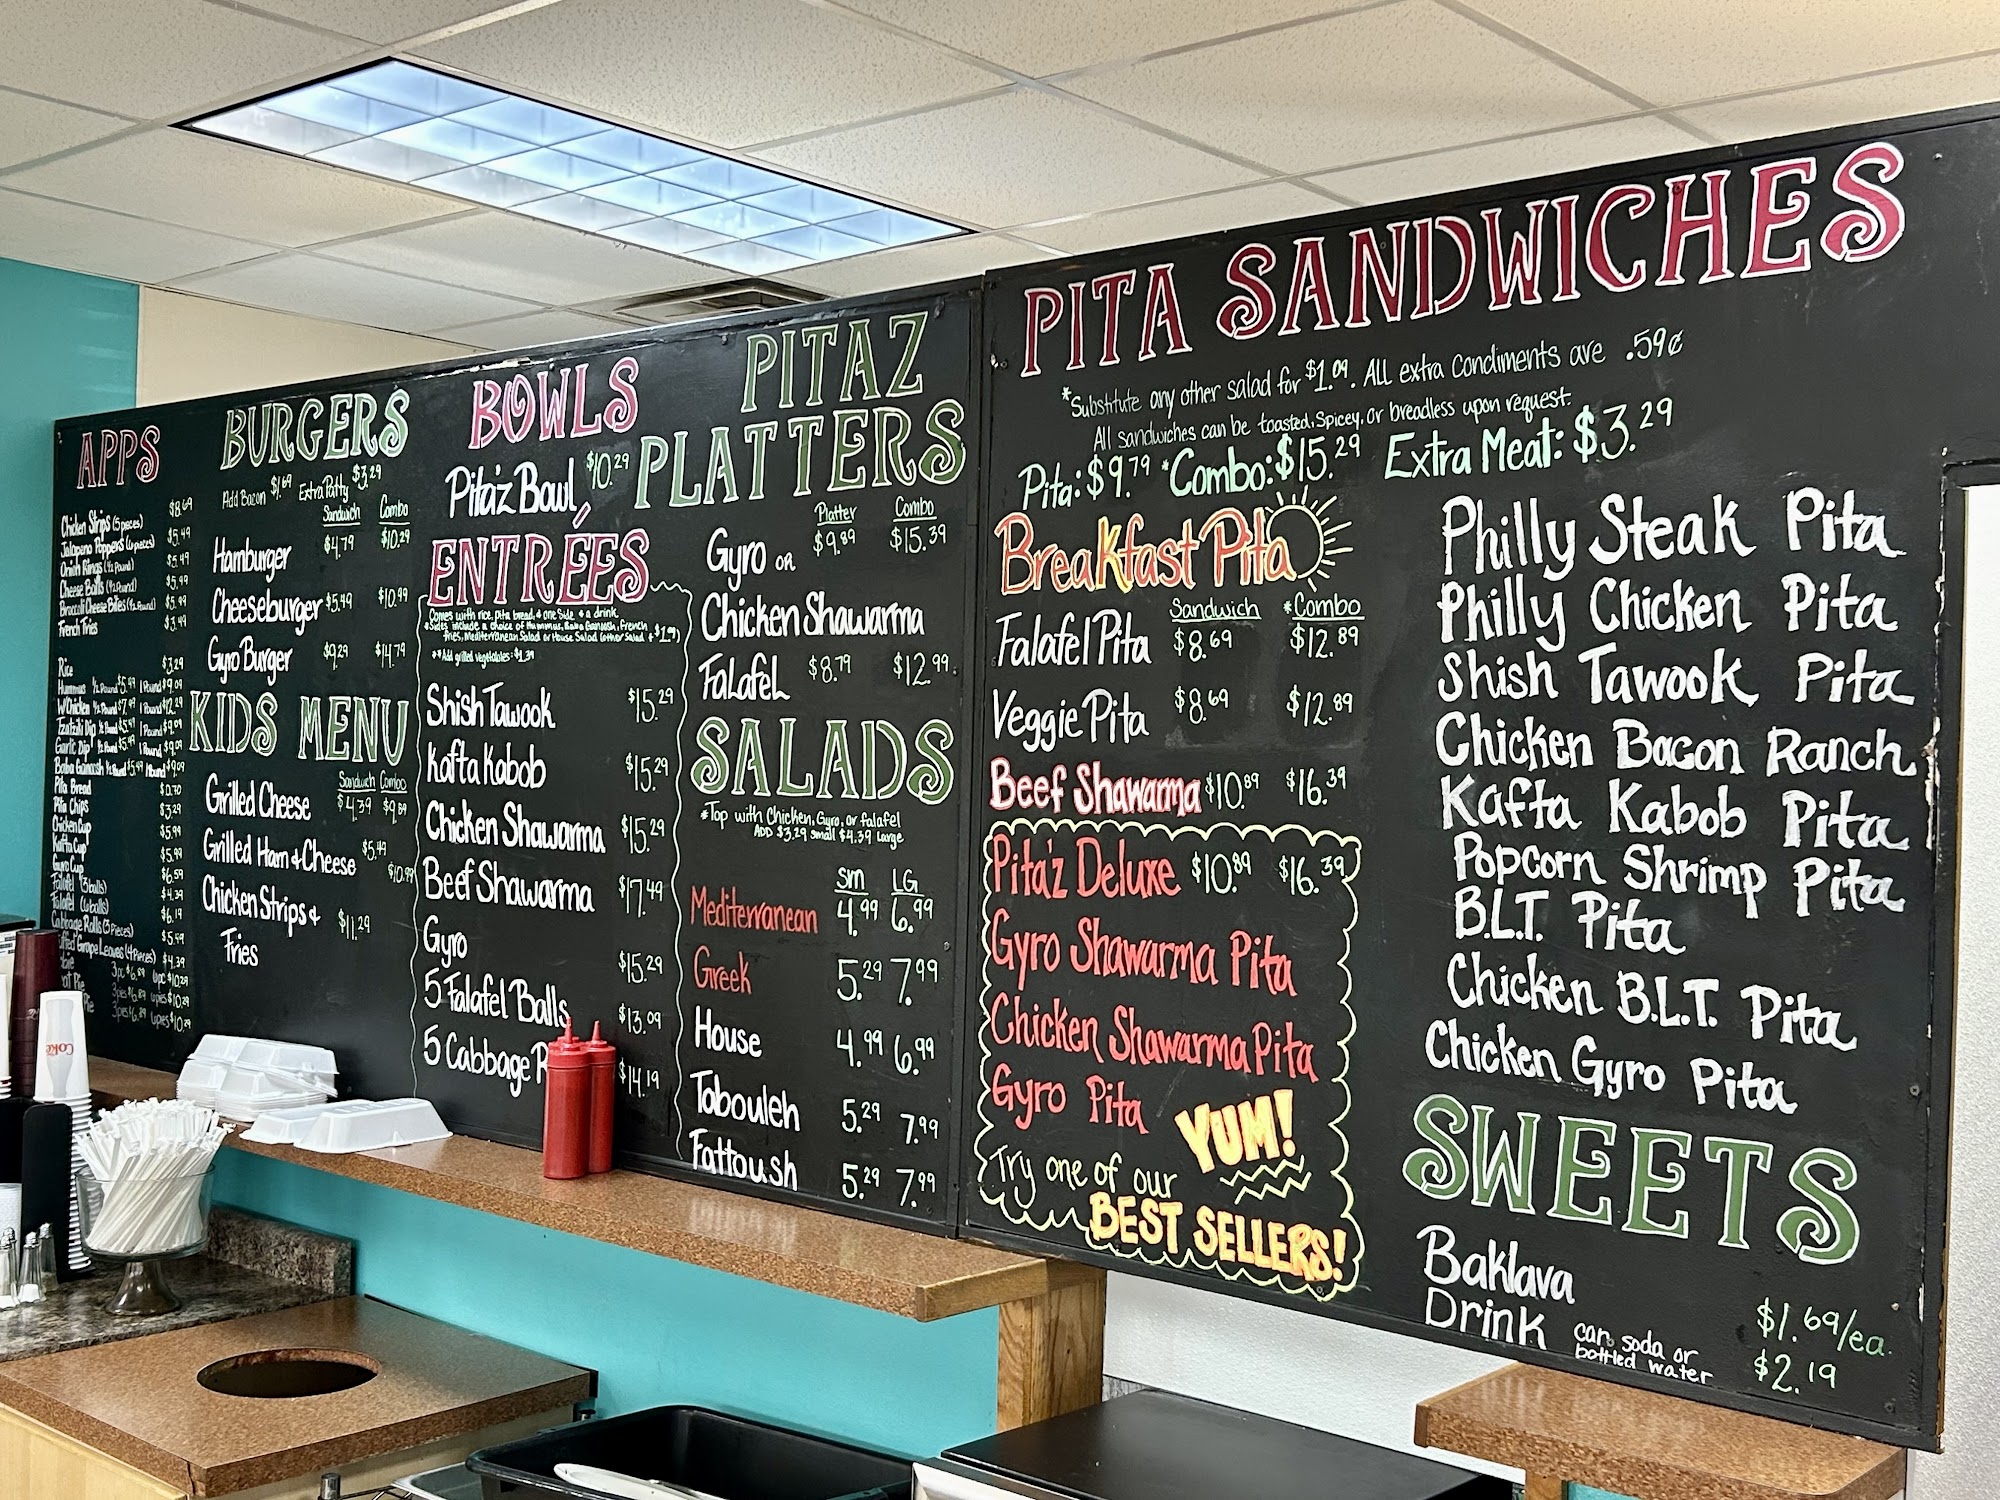 APPS
Chicken Strips (5 pieces) $8.69
Jalapeno Poppers (6 pieces) $5.49
Onion Rings (1/2 Pound) $5.49
Cheese Balls (1/2 Pound) $5.99
Broccoli Cheese Bites (1/2 Pound) $5.99
French Fries $3.99
Rice $3.29
Hummus 1/2 Pound $5.49 1 Pound $9.09
W/Chicken 1/2 Pound $7.49 1 Pound $12.29
Tzatziki Dip 1/2 Pound $5.49 1 Pound $9.09
Garlic Dip 1/2 Pound $5.49 1 Pound $9.09
Baba Ganoush 1/2 Pound $5.49 1 Pound $9.09
Pita Bread $0.70
Pita Chips $3.29
Chicken Cup $5.99
Kafta Cup $5.99
Gyro Cup $6.59
Falafel (3 balls) $4.39
Falafel (6 balls) $6.19
Cabbage Rolls (3 Pieces) $5.49
Grape Leaves (4 Pieces) $4.39
BURGERS
Add Bacon $1.69 Extra Patty $3.29
Sandwich Combo
Hamburger $4.79 $10.29
Cheeseburger $5.49 $10.99
Gyro Burger $9.29 $14.79
KIDS MENU
Sandwich Combo
Grilled Cheese $4.39 $9.89
Grilled Ham & Cheese $5.49 $10.99
Chicken Strips & $11.29
Fries
BOWLS
Pita'z Bowl $10.29
ENTRÉES
Comes with rice, pita bread, & one side & a drink.
*Sides include a choice of Hummus, Baba Ganoush, French
fries, Mediterranean Salad or House Salad (other salad + $1.09)
**Add grilled vegetables: $1.39
Shish Tawook $15.29
Kafta Kabob $15.29
Chicken Shawarma $15.29
Beef Shawarma $17.49
Gyro $15.29
5 Falafel Balls $13.09
5 Cabbage R $14.19
PITAZ
PLATTERS
Platter Combo
Gyro or $9.89 $15.39
Chicken Shawarma
Falafel $8.79 $12.99
SALADS
*Top with Chicken, Gyro, or falafel
ADD $3.29 small $4.39 Large
SM LG
Mediterranean 4.99 6.99
Greek 5.29 7.99
House 4.99 6.99
Tabouleh 5.29 7.99
Fattoush 5.29 7.99
PITA SANDWICHES
*Substitute any other salad for $1.09. All extra condiments are .59¢
All sandwiches can be toasted, spicey, or breadless upon request.
Pita: $9.79 *Combo: $15.29 Extra Meat: $3.29
Breakfast Pita
Sandwich *Combo
Falafel Pita $8.69 $12.89
Veggie Pita $8.69 $12.89
Beef Shawarma $10.89 $16.39
Pita'z Deluxe $10.89 $16.39
Gyro Shawarma Pita
Chicken Shawarma Pita
Gyro Pita
YUM!
Try one of our
BEST SELLERS!
Philly Steak Pita
Philly Chicken Pita
Shish Tawook Pita
Chicken Bacon Ranch
Kafta Kabob Pita
Popcorn Shrimp Pita
B.L.T. Pita
Chicken B.L.T. Pita
Chicken Gyro Pita
SWEETS
Baklava $1.69/ea.
Drink can soda or $2.19
bottled water
Coke